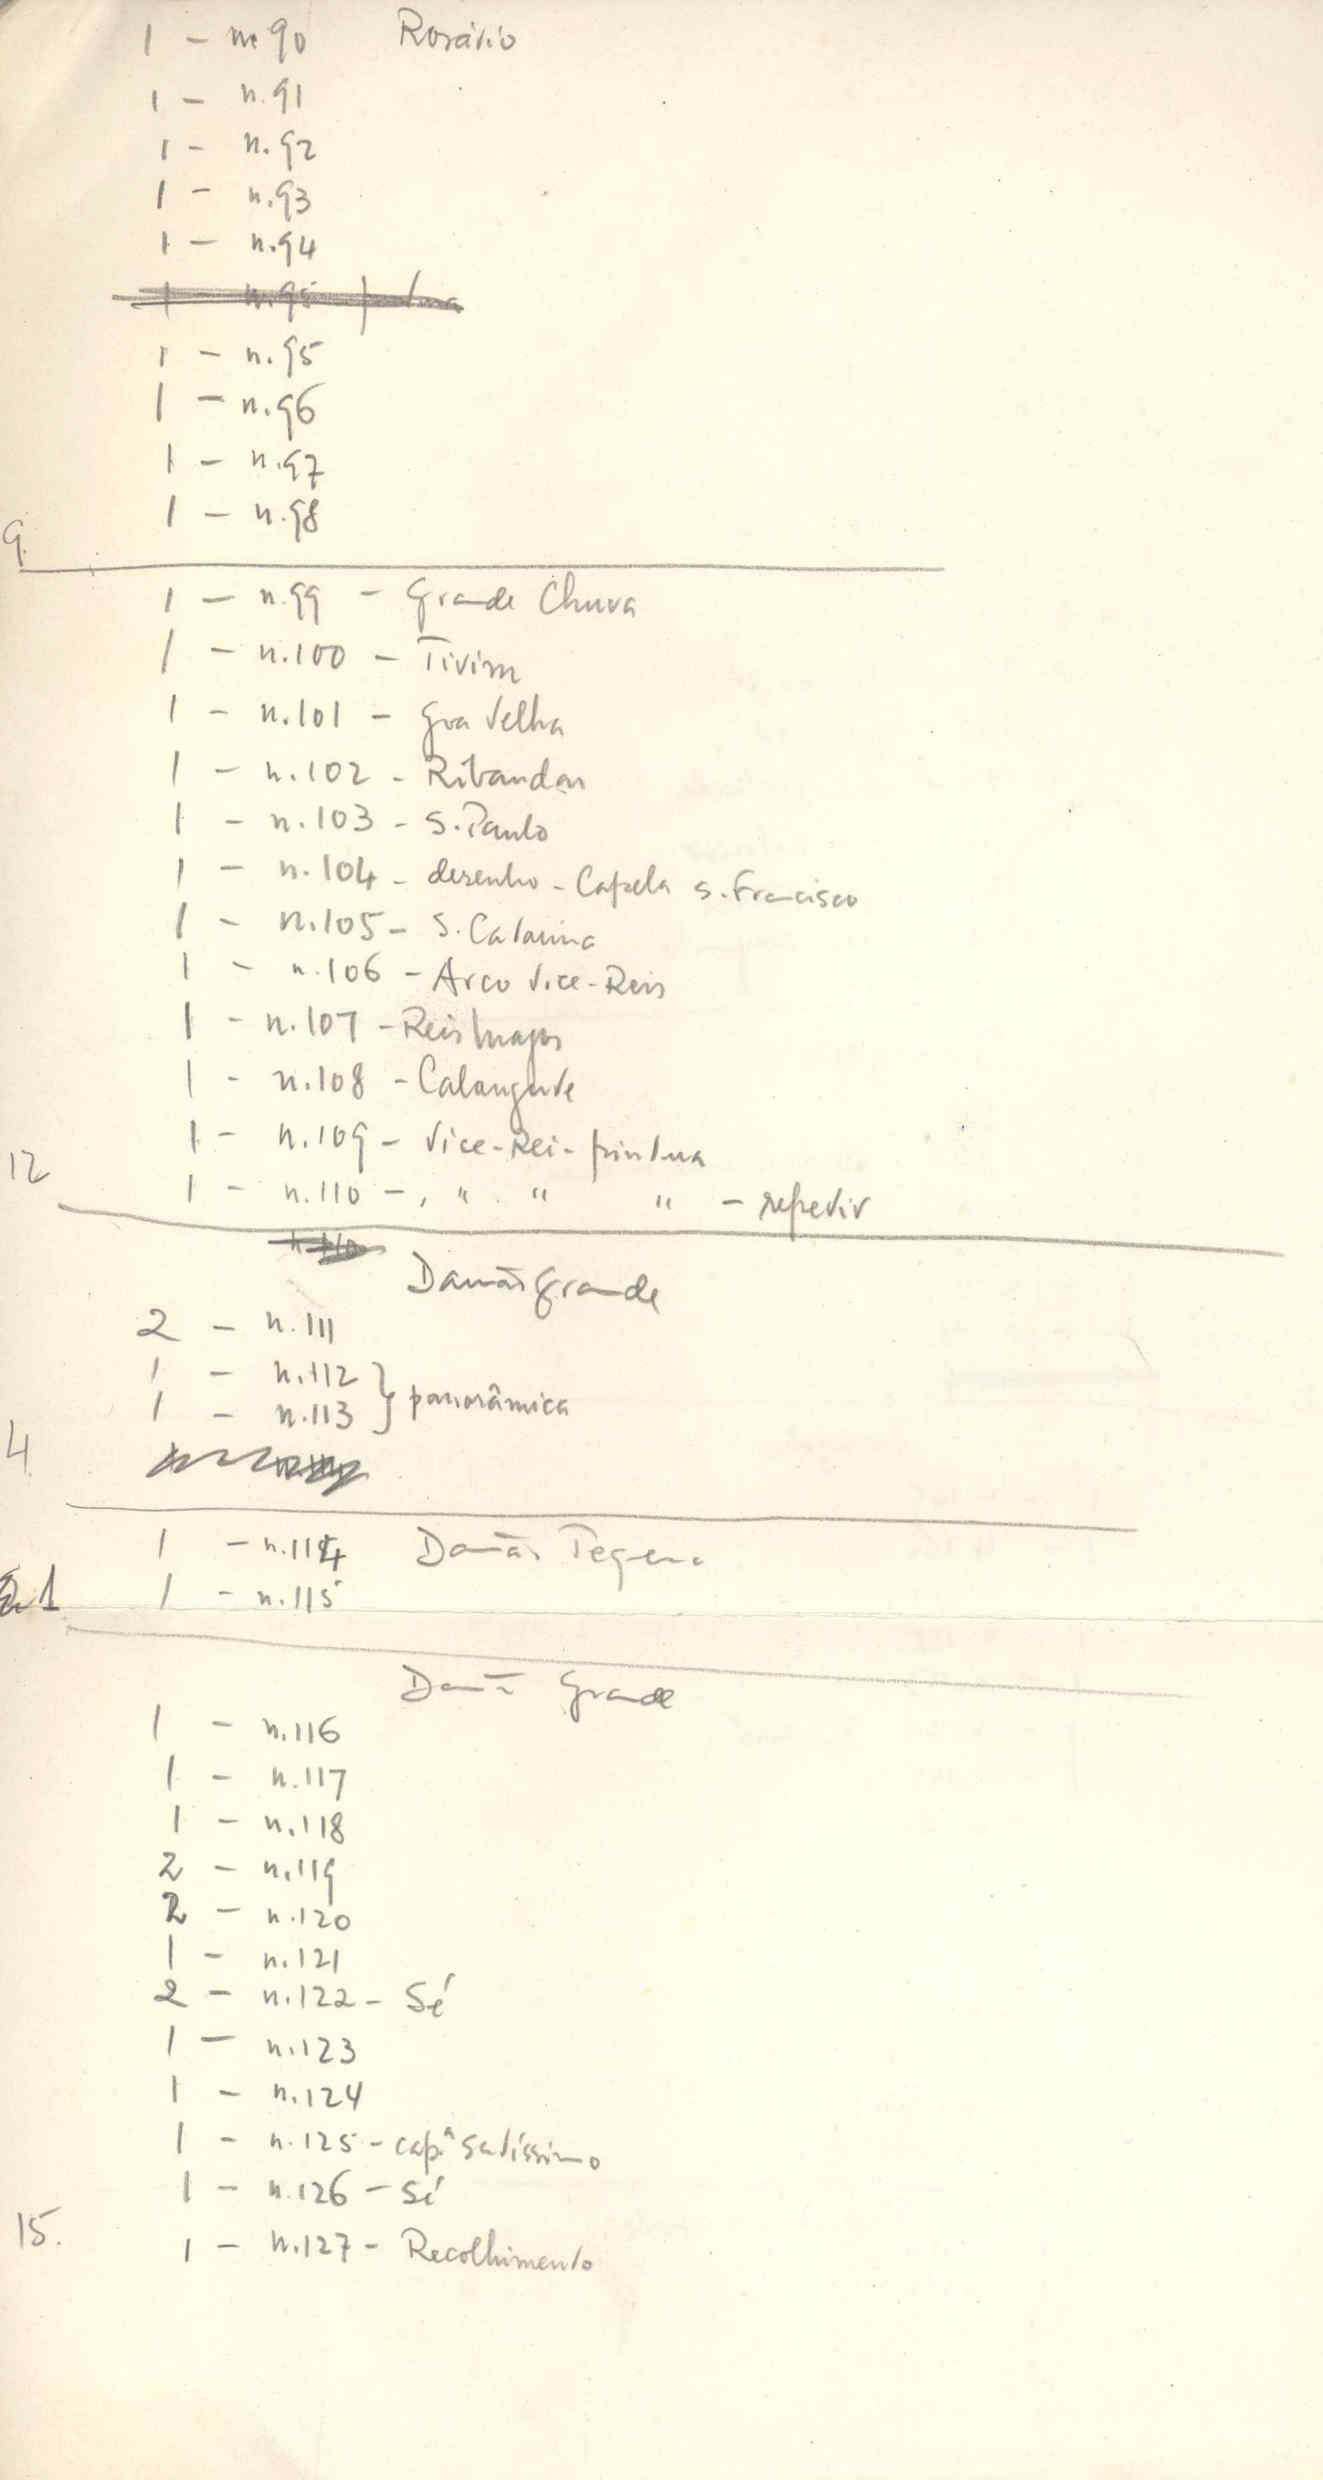 1 - nº 90 Rosário
1 - n.91
1 - n.92
1 - n.93
1 - n.94
1 - n.95
1 - n.95
1 - n.96
1 - n.97
1 - n.98
9
1 - n.99 - Grande Chuva
1 - n.100 - Tivim
1 - n.101 - Goa Velha
1 - n.102 - Ribandar
1 - n.103 - S. Paulo
1 - n.104 - desenho - Capela S. Francisco
1 - n.105 - S. Catarina
1 - n.106 - Arco Vice-Reis
1 - n.107 - Reis Magos
1 - n.108 - Calangute
1 - n.109 - Vice-Rei - pintura
12
1 - n.110 - " " " - repetir
n.110
Damão Grande
2 - n.111
1 - n.112 } panorâmica
1 - n.113
4
1 - n.114 Damão Pequeno
1 1 - n.115
Damão Grande
1 - n.116
1 - n.117
1 - n.118
2 - n.119
2 - n.120
1 - n.121
2 - n.122 - Sé
1 - n.123
1 - n.124
1 - n.125 - capª Satíssimo
1 - n.126 - Sé
15. 1 - n.127 - Recolhimento